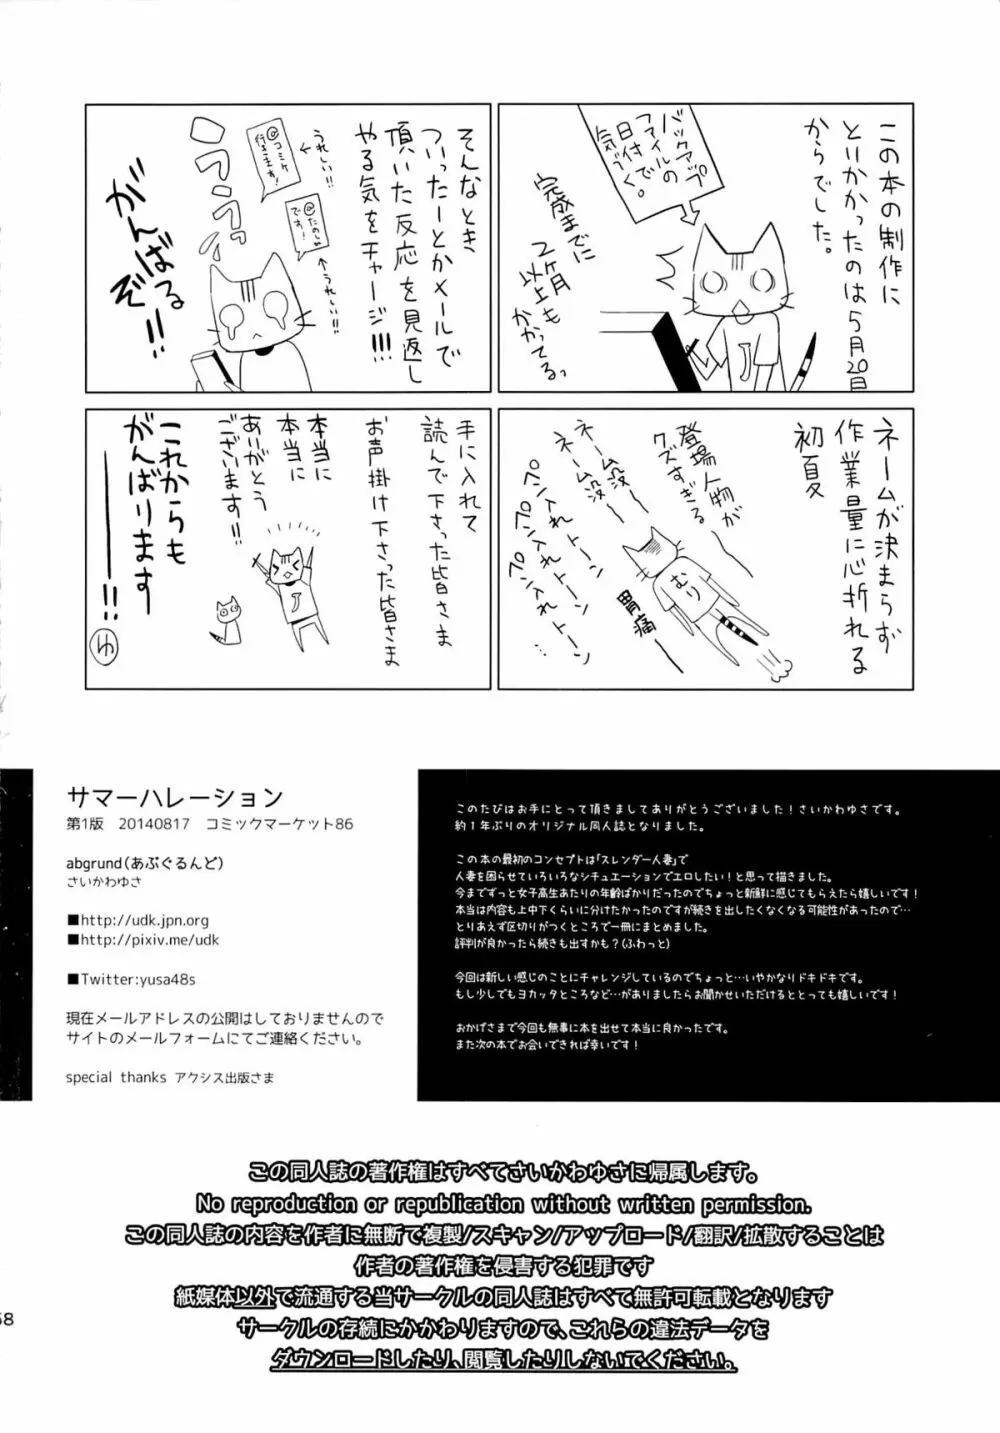 この本の制作に
とりかかったのは5月20日
からでした。
バックアップ
ファイルの
日付で
気づく。
完成までに
2ヶ月
以上も
かかってるっ
J
そんなとき
ついったーとかメールで
頂いた反応を見返し
やる気をチャージ!!!
うれしい!!
@コミケ
行きます!
@たのしみ
です!
うれしい!!
うううっ
がんばる
ぞ!!
ネームが決まらず
作業量に心折れる
初夏
登場人物が
クズすぎる
ネーム没〜
ネーム没〜
ペン入れトーン
ペン入れトーン
ペン入れトーン
むり
胃痛
手に入れて
読んで下さった皆さま
お声掛け下さった皆さま
本当に
本当に
ありがとう
ございます!!
J
これからも
がんばります
――!!
ゆ
サマーハレーション
第1版 20140817 コミックマーケット86
abgrund(あぶぐるんど)
さいかわゆさ
■http://udk.jpn.org
■http://pixiv.me/udk
■Twitter:yusa48s
現在メールアドレスの公開はしておりませんので
サイトのメールフォームにてご連絡ください。
special thanks アクシス出版さま
このたびはお手にとって頂きましてありがとうございました!さいかわゆさです。
約1年ぶりのオリジナル同人誌となりました。
この本の最初のコンセプトは「スレンダー人妻」で
人妻を困らせていろいろなシチュエーションでエロしたい!と思って描きました。
今までずっと女子高生あたりの年齢ばかりだったのでちょっと新鮮に感じてもらえたら嬉しいです!
本当は内容も上中下くらいに分けたかったのですが続きを出したくなくなる可能性があったので…
とりあえず区切りがつくところで一冊にまとめました。
評判が良かったら続きも出すかも?(ふわっと)
今回は新しい感じのことにチャレンジしているのでちょっと…いやかなりドキドキです。
もし少しでもヨカッタところなど…がありましたらお聞かせいただけるととっても嬉しいです!
おかげさまで今回も無事に本を出せて本当に良かったです。
また次の本でお会いできれば幸いです!
この同人誌の著作権はすべてさいかわゆさに帰属します。
No reproduction or republication without written permission.
この同人誌の内容を作者に無断で複製/スキャン/アップロード/翻訳/拡散することは
作者の著作権を侵害する犯罪です
紙媒体以外で流通する当サークルの同人誌はすべて無許可転載となります
サークルの存続にかかわりますので、これらの違法データを
ダウンロードしたり、閲覧したりしないでください。
58